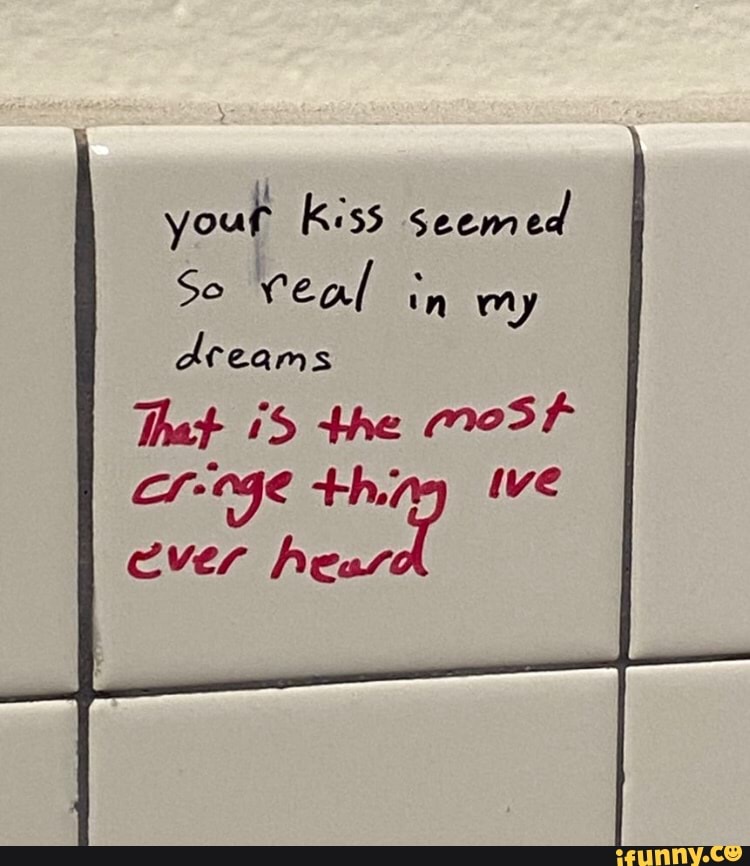 your kiss seemed
So real in my
dreams
That is the most
cringe thing Ive
ever heard
ifunny.co